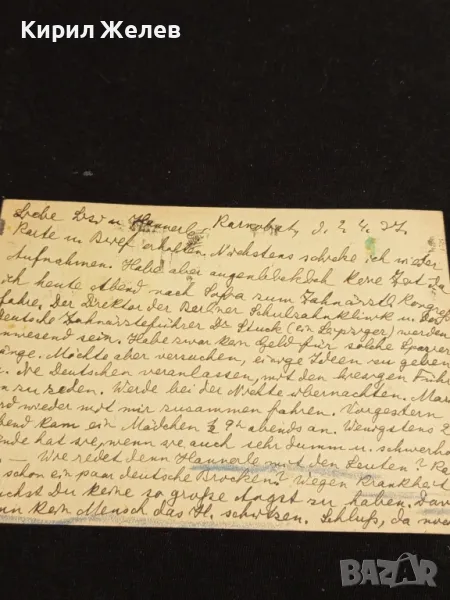 Кирил Желев
Liebe Dear u. Hannerle, Karnobat, d. 2. 4. 37.
Karte u. Brief erhalten. Nächstens schicke ich wieder
Aufnahmen. Habe aber augenblicklich keine Zeit da
ich heute Abend nach Sofia zum Zahnärztl. Kongreß
fahre. Der Direktor der Berliner Schulzahnklinik u. der
deutsche Zahnärzteführer Dr. Stuck (ein Leipziger) werden
anwesend sein. Habe zwar kein Geld für solche
Möchte aber versuchen, einige Ideen zu geben
Die Deutschen veranlassen, mit den hiesigen
zu reden. Werde bei der Nichte übernachten.
wieder mit mir zusammen fahren. Vorgestern
kam ein Mädchen ½ 9 abends an. Wenigstens 2
hat sie, wenn sie auch sehr dumm u. schwerhö
— Wie redet denn Hannerle mit den Leuten?
schon ein paar deutsche Brocken? Wegen Krankheit
Du keine so große Angst zu haben. Davo
kein Mensch das Kl. schützen. Schluß, da noch
BAZAR